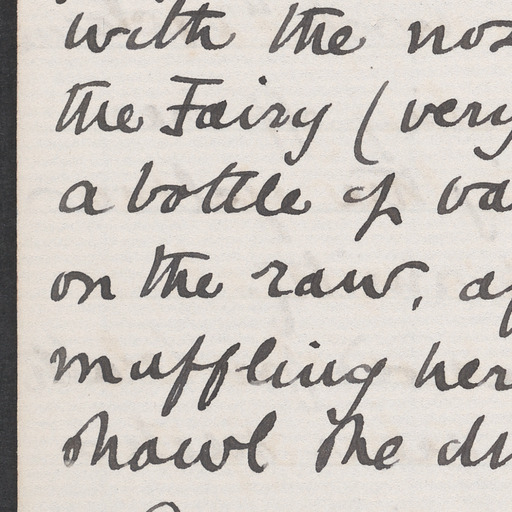 with the noz
the Fairy (very
a bottle of va
on the raw, af
muffling her
shawl she du